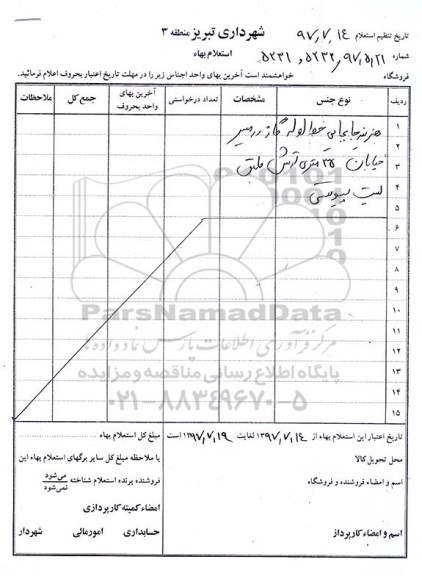 تاریخ تنظیم استعلام ۹۷٫۷٫۱۴ شهرداری تبریز منطقه ۳
شماره ۵۲۳۱ و ۵۲۳۲ و ۹۷٫۵٫۲۱ استعلام بهاء
فروشگاه خواهشمند است آخرین بهای واحد اجناس زیر را در مهلت تاریخ اعتبار بحروف اعلام فرمائید.
ردیف نوع جنس مشخصات تعداد درخواستی آخرین بهای واحد بحروف جمع کل ملاحظات
۱ هزینه جابجایی خط لوله گاز در مسیر
۲
۳ خیابان ۳۵ متری ارتش طبق
۴ لیست پیوستی
۵
۶
۷
۸
۹
۱۰
۱۱
۱۲
۱۳
۱۴
۱۵
ParsNamadData
مرکز فرآوری اطلاعات پارس نماد داده ها
پایگاه اطلاع رسانی مناقصه و مزایده
۰۲۱-۸۸۳۴۹۶۷۰-۵
تاریخ اعتبار این استعلام بهاء از ۱۳۹۷٫۷٫۱۴ لغایت ۱۳۹۷٫۷٫۱۹ است مبلغ کل استعلام بهاء
محل تحویل کالا با ملاحظه مبلغ کل سایر برگهای استعلام بهاء این
اسم و امضاء فروشنده و فروشگاه فروشنده برنده استعلام شناخته می‌شود
نمی‌شود
امضاء کمیته کارپردازی
اسم و امضاء کارپرداز حسابداری امورمالی شهردار